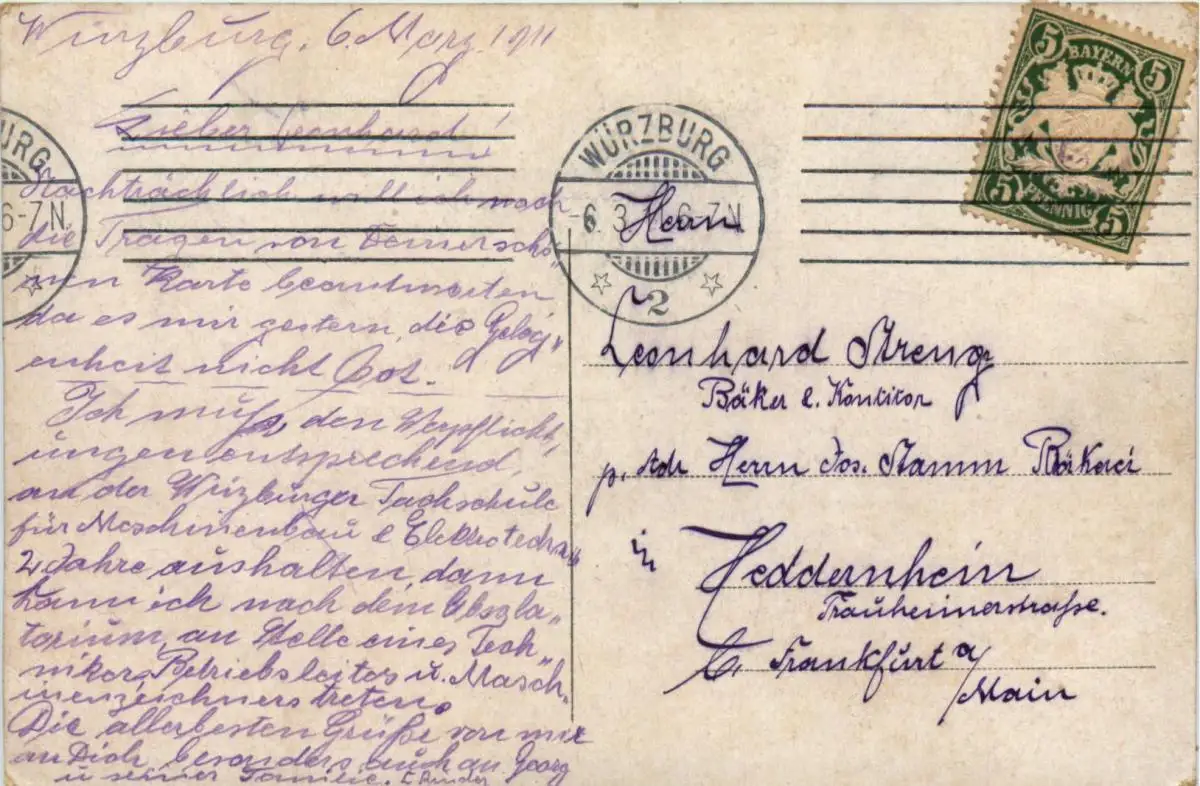 Würzburg, 6. März 1911
Lieber Leonhard!
Nachträchlich will ich noch
die Fragen von Deiner schö„
nen Karte beantworten
da es mir gestern, die Geleg„
enheit nicht bot.
Ich muß, den Verpflicht„
ungen entsprechend,
an der Würzburger Fachschule
für Maschinenbau & Elektrotechnik
2 Jahre aushalten, dann
kann ich nach dem Absola„
torium, an Stelle eines Tech„
nikers Betriebsleiters u. Masch„
inenzeichners treten.
Die allerbesten Grüße von mir
an Dich besonders auch an Georg
u seiner Familie.
WÜRZBURG
6-7N.
WÜRZBURG
-6.3 6-7N.
2
5 5
BAYERN
5 5
PFENNIG
Herrn
Leonhard Streng
Bäker & Kontitor
p. Adr Herrn Jos. Stamm Bäkerei
in Heddernhein
Trauheimerstraße.
b. Frankfurt a/
Main